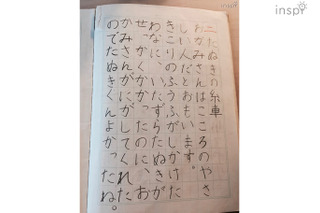 inspi
たぬきの糸車
おかみさんはこころのやさ
しい人だとおもいます。
きこりのふうふがしかけた
わなに、いたずらたぬき
かかったのに、お
かみさんがにがしてくれた
のでたぬきくんよかったね。
inspi